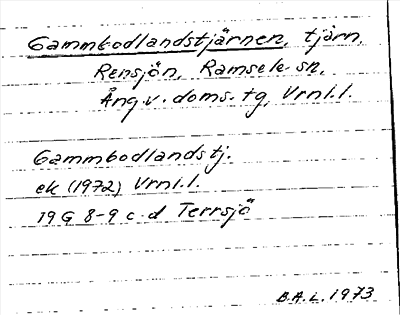 Gammbodlandstjärnen, tjärn,
Rensjön, Ramsele sn,
Ång.v. doms. tg, Vrnl.l.
Gammbodlandstj.
ek (1972) Vrnl.l.
19 G 8-9 c-d Terrsjö
B.A.L. 1973